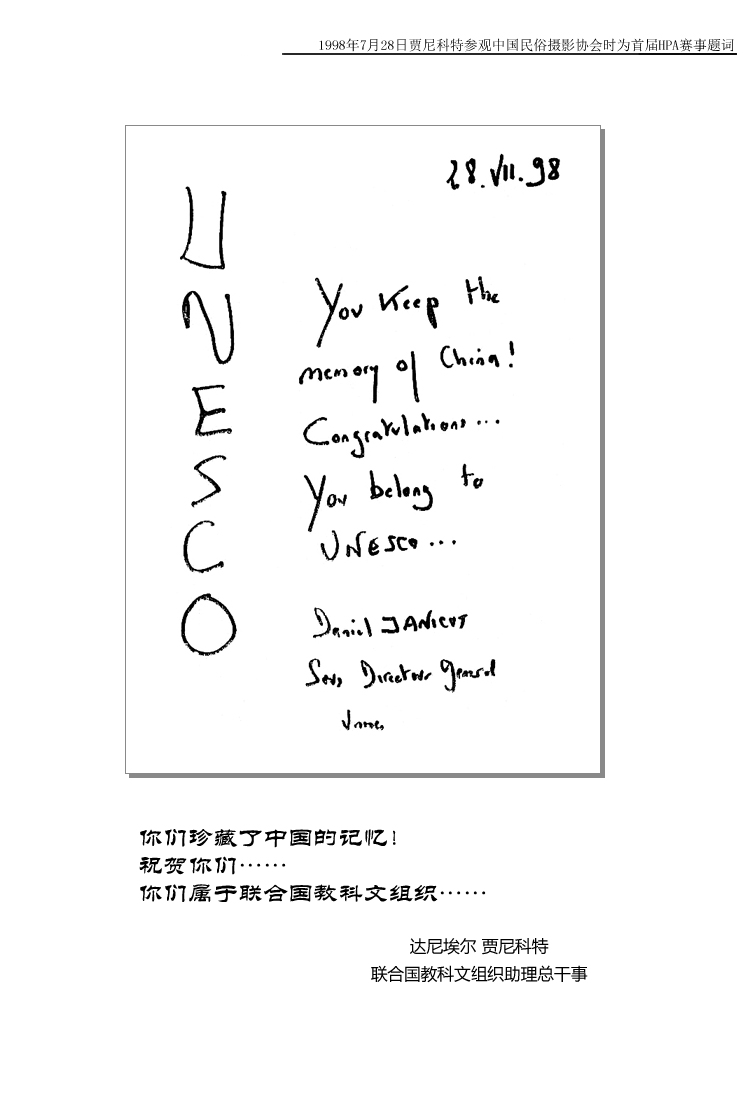 1998年7月28日贾尼科特参观中国民俗摄影协会时为首届HPA赛事题词
28.VII.98
UNESCO
You Keep the
memory of China!
Congratulations...
You belong to
UNESCO...
Daniel JANICOT
Director general
你们珍藏了中国的记忆!
祝贺你们……
你们属于联合国教科文组织……
达尼埃尔 贾尼科特
联合国教科文组织助理总干事